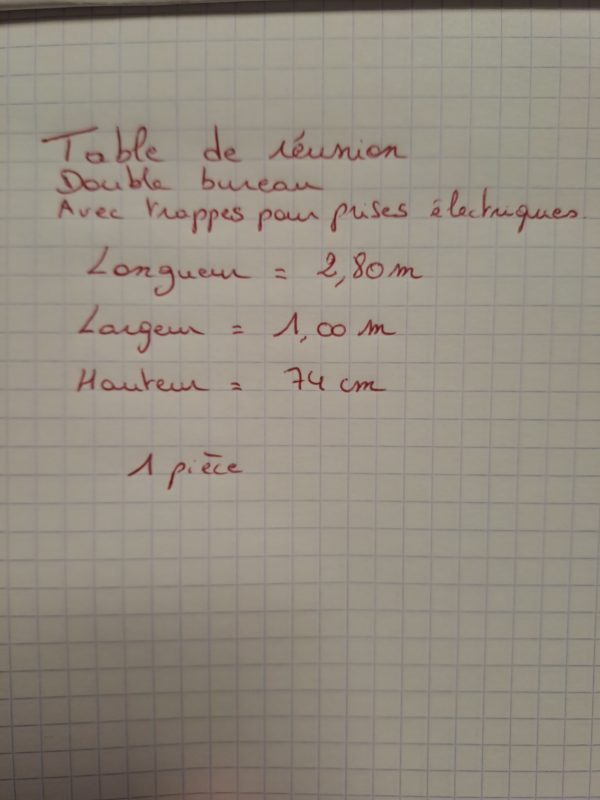 Table de réunion
Double bureau
Avec trappes pour prises électriques.
Longueur = 2,80 m
Largeur = 1,00 m
Hauteur = 74 cm
1 pièce